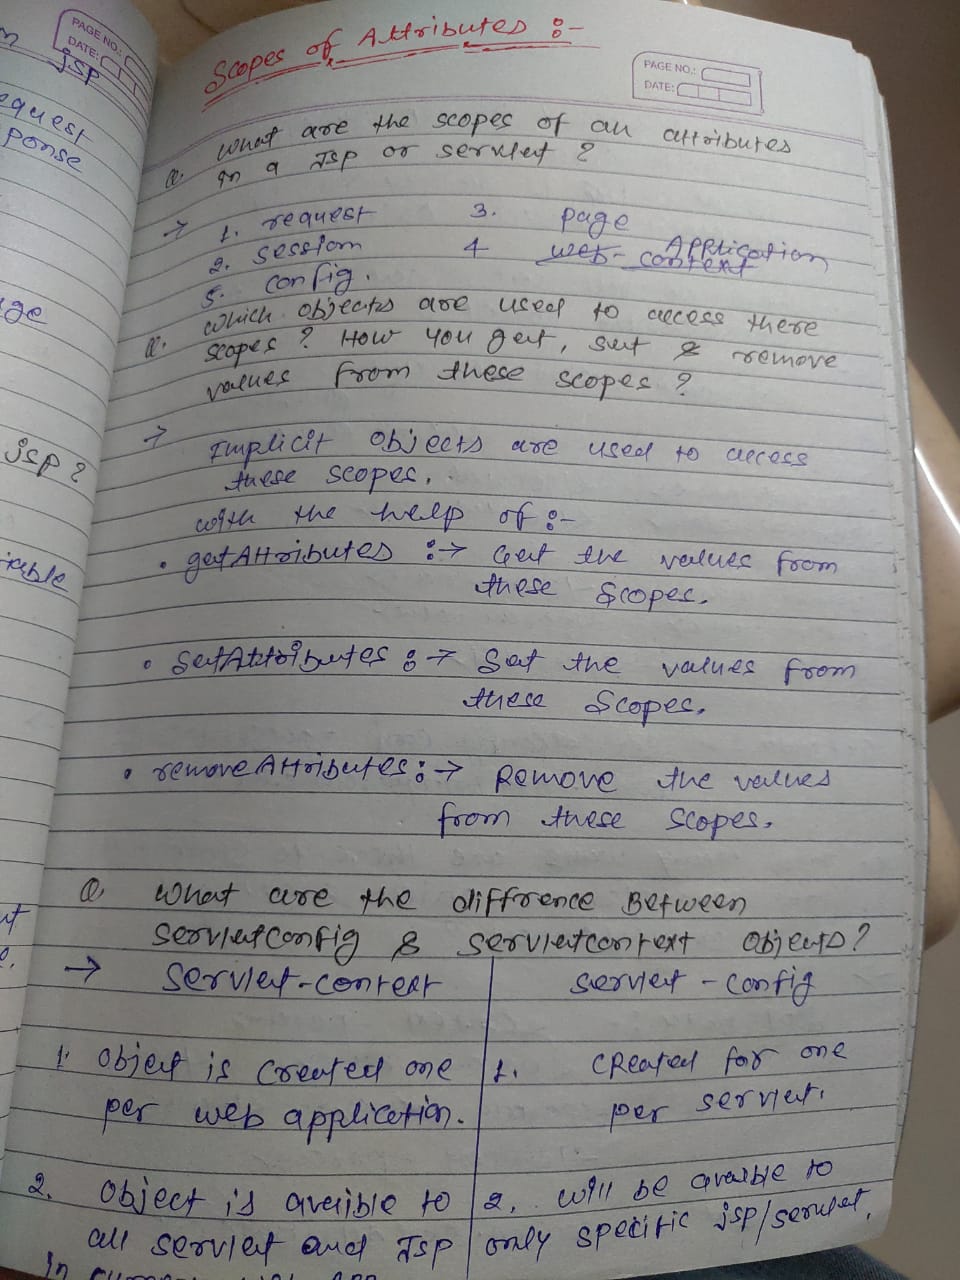 PAGE NO.:
DATE:
jsp
equest
ponse
ge
jsp ?
Scopes of Attributes :-
PAGE NO.:
DATE:
Q. What are the scopes of an attributes
in a Jsp or servlet ?
→ 1. request 3. page
2. session 4 web-context Application
5. config.
Q. Which objects are used to access there
scopes ? How you get, set & remove
values from these scopes ?
→ Implicit objects are used to access
these scopes.
with the help of :-
• getAttributes :→ Get the values from
these Scopes.
• SetAttributes :→ Set the values from
these Scopes.
• removeAttributes :→ Remove the values
from these Scopes.
Q. What are the diffrence Between
servletconfig & servletcontext objects?
→ Servlet-context servlet-config
1. Object is created one 1. CReated for one
per web application. per servlet.
2. Object is avaible to 2. will be avaible to
all servlet and Jsp only specific jsp/servlet.
in